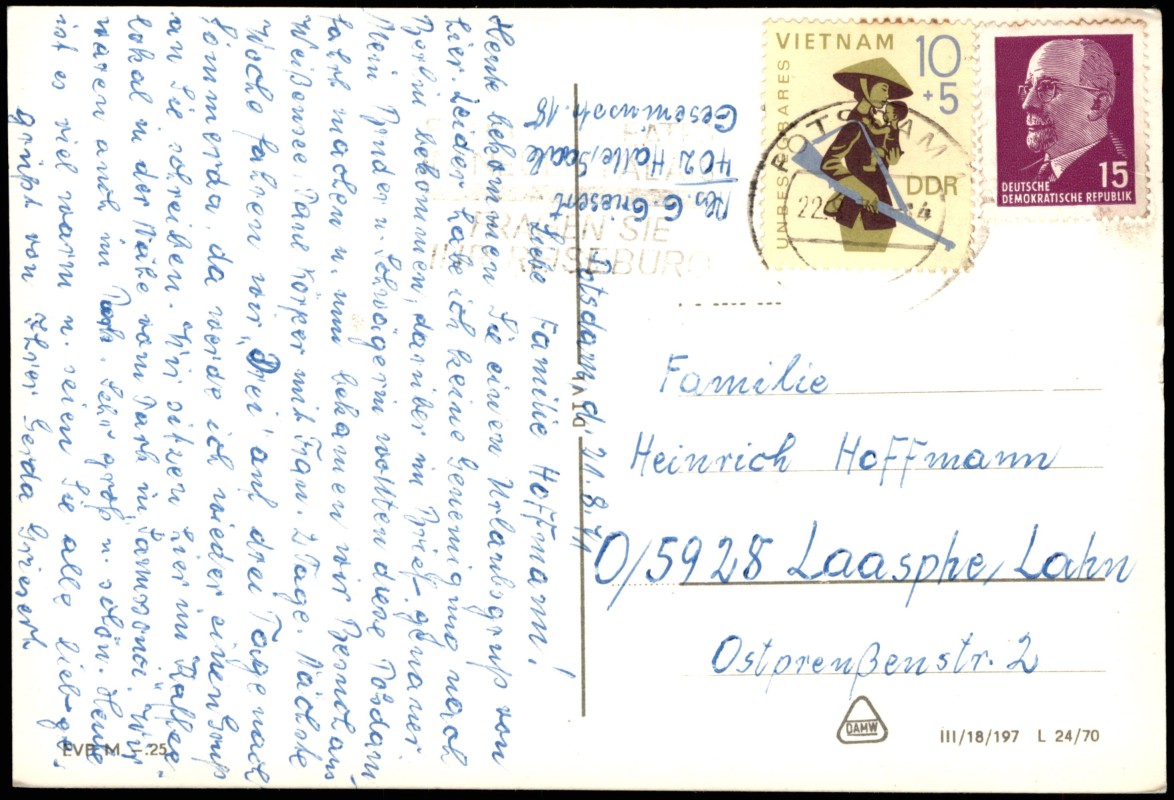 Potsdam, d. 21.8.71
Liebe Familie Hoffmann!
Heute bekommen Sie einen Urlaubsgruß von
hier. Leider habe ich keine Genemigung nach
Berlin bekommen, darüber im Brief genauer
Mein Bruder u. Schwägerin wollten diese Potsdam
fahrt machen u. nun bekamen wir Besuch aus
Weißensee. Pare Körper mit Frau. 2 Tage. Nächste
Woche fahren wir „Drei" auf drei Tage nach
Sömmerda, da werde ich wieder einen Gruß
an Sie schreiben. Wir sitzen hier im Kaffee-
lokal in der Nähe vom Park in „Sanssouci". Wir
waren auch im Park. Sehr groß u. schön. Heute
ist es viel warm u. seien Sie alle lieb ge-
grüßt von Ihrer Gerda Griesert
Abs. G. Griesert
402 Halle/Saale
Geseniusstr. 18
TRAGEN SIE
IHRE ROSEBURG
VIETNAM
10
+5
UNBESIEGBARES
DDR
POTSDAM
22.
15
DEUTSCHE
DEMOKRATISCHE REPUBLIK
Familie
Heinrich Hoffmann
O/5928 Laasphe, Lahn
Ostpreußenstr. 2
DAMW
III/18/197 L 24/70
EVP M –.25